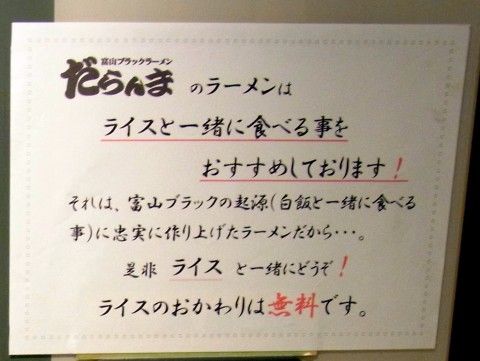 富山ブラックラーメン
だらんま のラーメンは
ライスと一緒に食べる事を
おすすめしております！
それは、富山ブラックの起源(白飯と一緒に食べる
事)に忠実に作り上げたラーメンだから・・・。
是非 ライス と一緒にどうぞ！
ライスのおかわりは無料です。